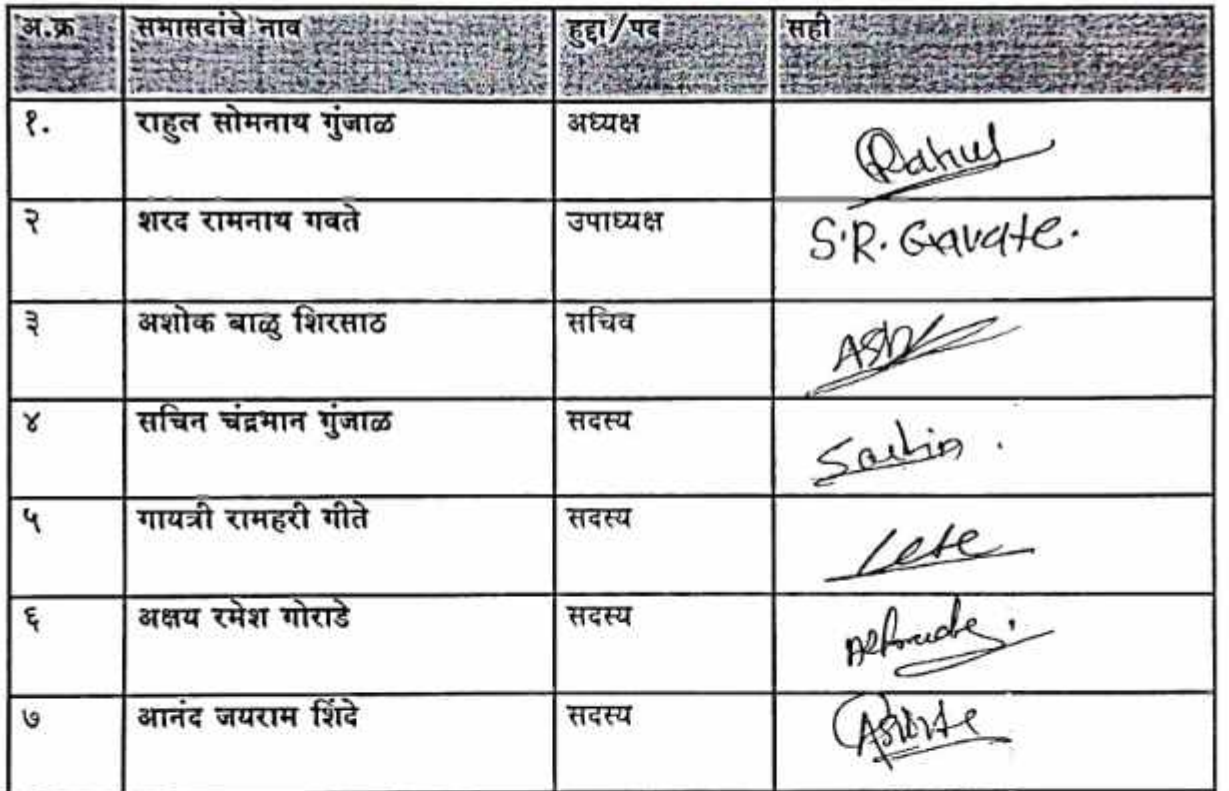 अ.क्र सभासदांचे नाव हुद्दा/पद सही
१. राहुल सोमनाथ गुंजाळ अध्यक्ष Rahul
२ शरद रामनाथ गवते उपाध्यक्ष S.R. Gavate.
३ अशोक बाळु शिरसाठ सचिव
४ सचिन चंद्रभान गुंजाळ सदस्य Sachin.
५ गायत्री रामहरी गीते सदस्य
६ अक्षय रमेश गोराडे सदस्य
७ आनंद जयराम शिंदे सदस्य